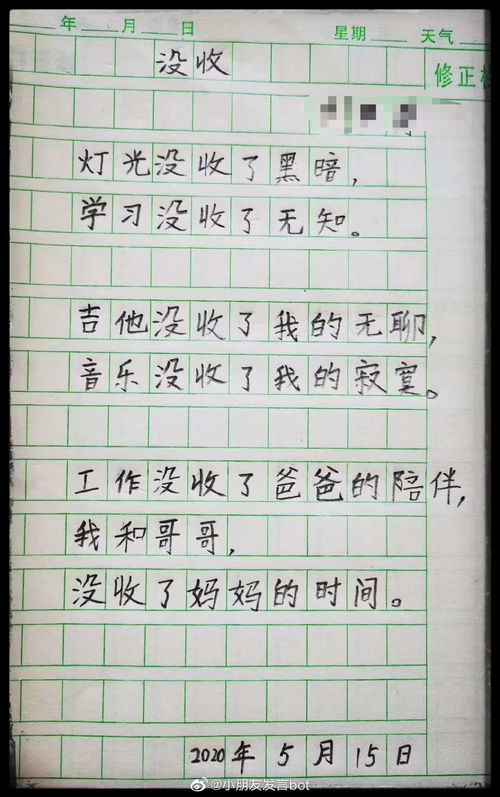 年 月 日 星期 天气
没收
修正栏
灯光没收了黑暗，
学习没收了无知。
吉他没收了我的无聊，
音乐没收了我的寂寞。
工作没收了爸爸的陪伴，
我和哥哥，
没收了妈妈的时间。
2020年5月15日
@小朋友发言bot